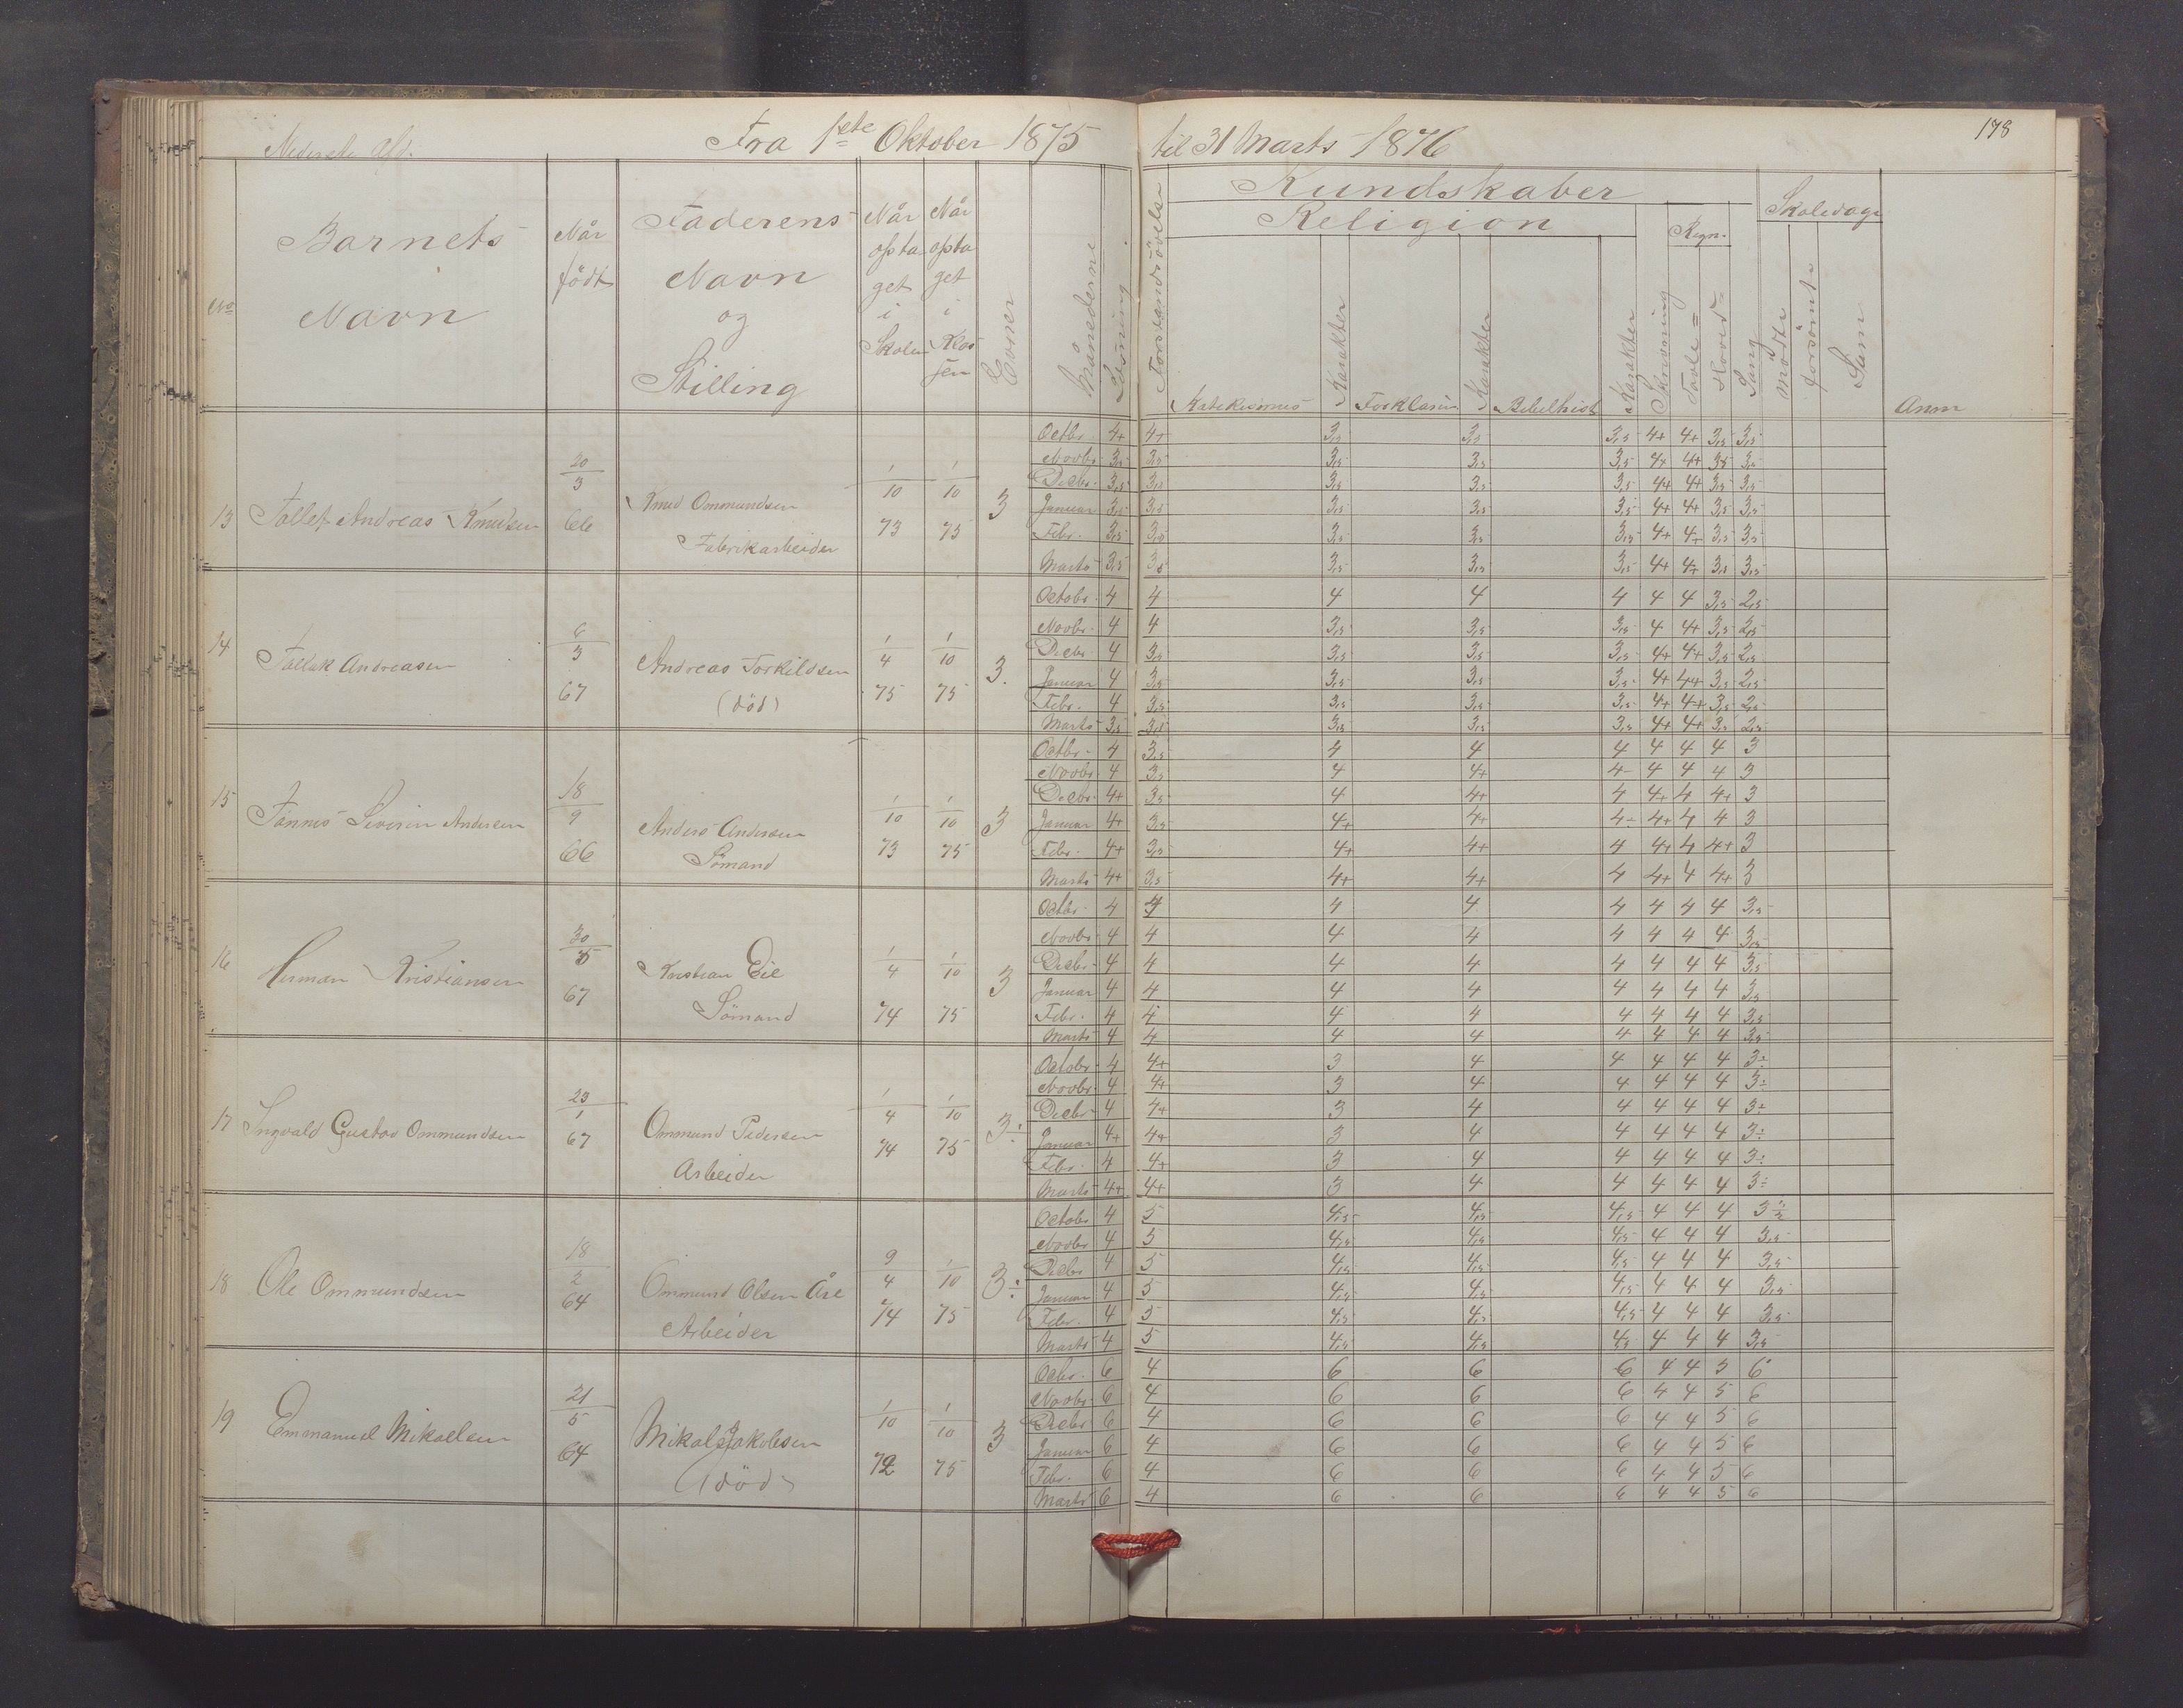 Nederste Afd.
Fra 1ste Oktober 1875 til 31 Marts 1876
178
No
Barnets Navn
Når födt
Faderens Navn og Stilling
Når optaget i Skolen
Når optaget i Klassen
Evner
Månederne
Læsning
Forstandsövelse
Kundskaber
Religion
Katekismus
Karakter
Forklaring
Karakter
Bibelhist
Karakter
Skrivning
Regn.
Tavle=
Hoved=
Sang
Skoledage
Mödte
forsömte
Sum
Anm
13 Tallef Andreas Knudsen 20/3 66 Knud Ommundsen Fabrikarbeider 1/10 73 1/10 75 3
Octbr. 4+ 4+ 3,5 3,5 3,5 4+ 4+ 3,5 3,5
Novbr 3,5 3,5 3,5 3,5 3,5 4+ 4+ 3,5 3,5
Decbr. 3,5 3,5 3,5 3,5 3,5 4+ 4+ 3,5 3,5
Januar 3,5 3,5 3,5 3,5 3,5 4+ 4+ 3,5 3,5
Febr. 3,5 3,5 3,5 3,5 3,5 4+ 4+ 3,5 3,5
Marts 3,5 3,5 3,5 3,5 3,5 4+ 4+ 3,5 3,5
14 Tallak Andreasen 6/3 67 Andreas Torkildsen (död) 1/4 75 1/10 75 3.
Octobr. 4 4 4 4 4 4 4 3,5 2,5
Novbr. 4 4 3,5 3,5 3,5 4 4+ 3,5 2,5
Decbr 4 3,5 3,5 3,5 3,5 4+ 4+ 3,5 2,5
Januar 4 3,5 3,5 3,5 3,5 4+ 4+ 3,5 2,5
Febr. 4 3,5 3,5 3,5 3,5 4+ 4+ 3,5 2,5
Marts 3,5 3,5 3,5 3,5 3,5 4+ 4+ 3,5 2,5
15 Tönnes Severin Andersen 18/9 66 Anders Andersen Sömand 1/10 73 1/10 75 3
Octbr. 4 3,5 4 4 4 4 4 4 3
Novbr. 4 3,5 4 4+ 4 4 4 4 3
Decbr. 4+ 3,5 4 4+ 4 4+ 4 4+ 3
Januar 4+ 3,5 4+ 4+ 4÷ 4+ 4 4 3
Febr. 4+ 3,5 4+ 4+ 4 4+ 4 4+ 3
Marts 4+ 3,5 4+ 4+ 4 4+ 4 4+ 3
16 Herman Kristiansen 30/5 67 Kristian Eie Sömand 1/4 74 1/10 75 3
Octbr. 4 4 4 4 4 4 4 4 3,5
Novbr. 4 4 4 4 4 4 4 4 3,5
Decbr. 4 4 4 4 4 4 4 4 3,5
Januar 4 4 4 4 4 4 4 4 3,5
Febr. 4 4 4 4 4 4 4 4 3,5
Marts 4 4 4 4 4 4 4 4 3,5
17 Ingvald Gustav Ommundsen 23/1 67 Ommund Pedersen Arbeider 1/4 74 1/10 75 3÷
Octobr. 4 4+ 3 4 4 4 4 4 3÷
Novbr. 4 4+ 3 4 4 4 4 4 3÷
Decbr 4 4+ 3 4 4 4 4 4 3÷
Januar 4+ 4+ 3 4 4 4 4 4 3÷
Febr. 4 4+ 3 4 4 4 4 4 3÷
Marts 4+ 4+ 3 4 4 4 4 4 3÷
18 Ole Ommundsen 18/2 64 Ommund Olsen Åse Arbeider 9/4 74 1/10 75 3÷
Octobr 4 5 4,5 4,5 4,5 4 4 4 3
Novbr 4 5 4,5 4,5 4,5 4 4 4 3,5
Decbr 4 5 4,5 4,5 4,5 4 4 4 3,5
Januar 4 5 4,5 4,5 4,5 4 4 4 3,5
Febr. 4 5 4,5 4,5 4,5 4 4 4 3,5
Marts 4 5 4,5 4,5 4,5 4 4 4 3,5
19 Emmanuel Mikaelsen 21/5 64 Mikal Jakobsen (död) 1/10 72 1/10 75 3
Octbr. 6 4 6 6 6 4 4 5 6
Novbr. 6 4 6 6 6 4 4 5 6
Decbr 6 4 6 6 6 4 4 5 6
Januar 6 4 6 6 6 4 4 5 6
Febr. 6 4 6 6 6 4 4 5 6
Marts 6 4 6 6 6 4 4 5 6